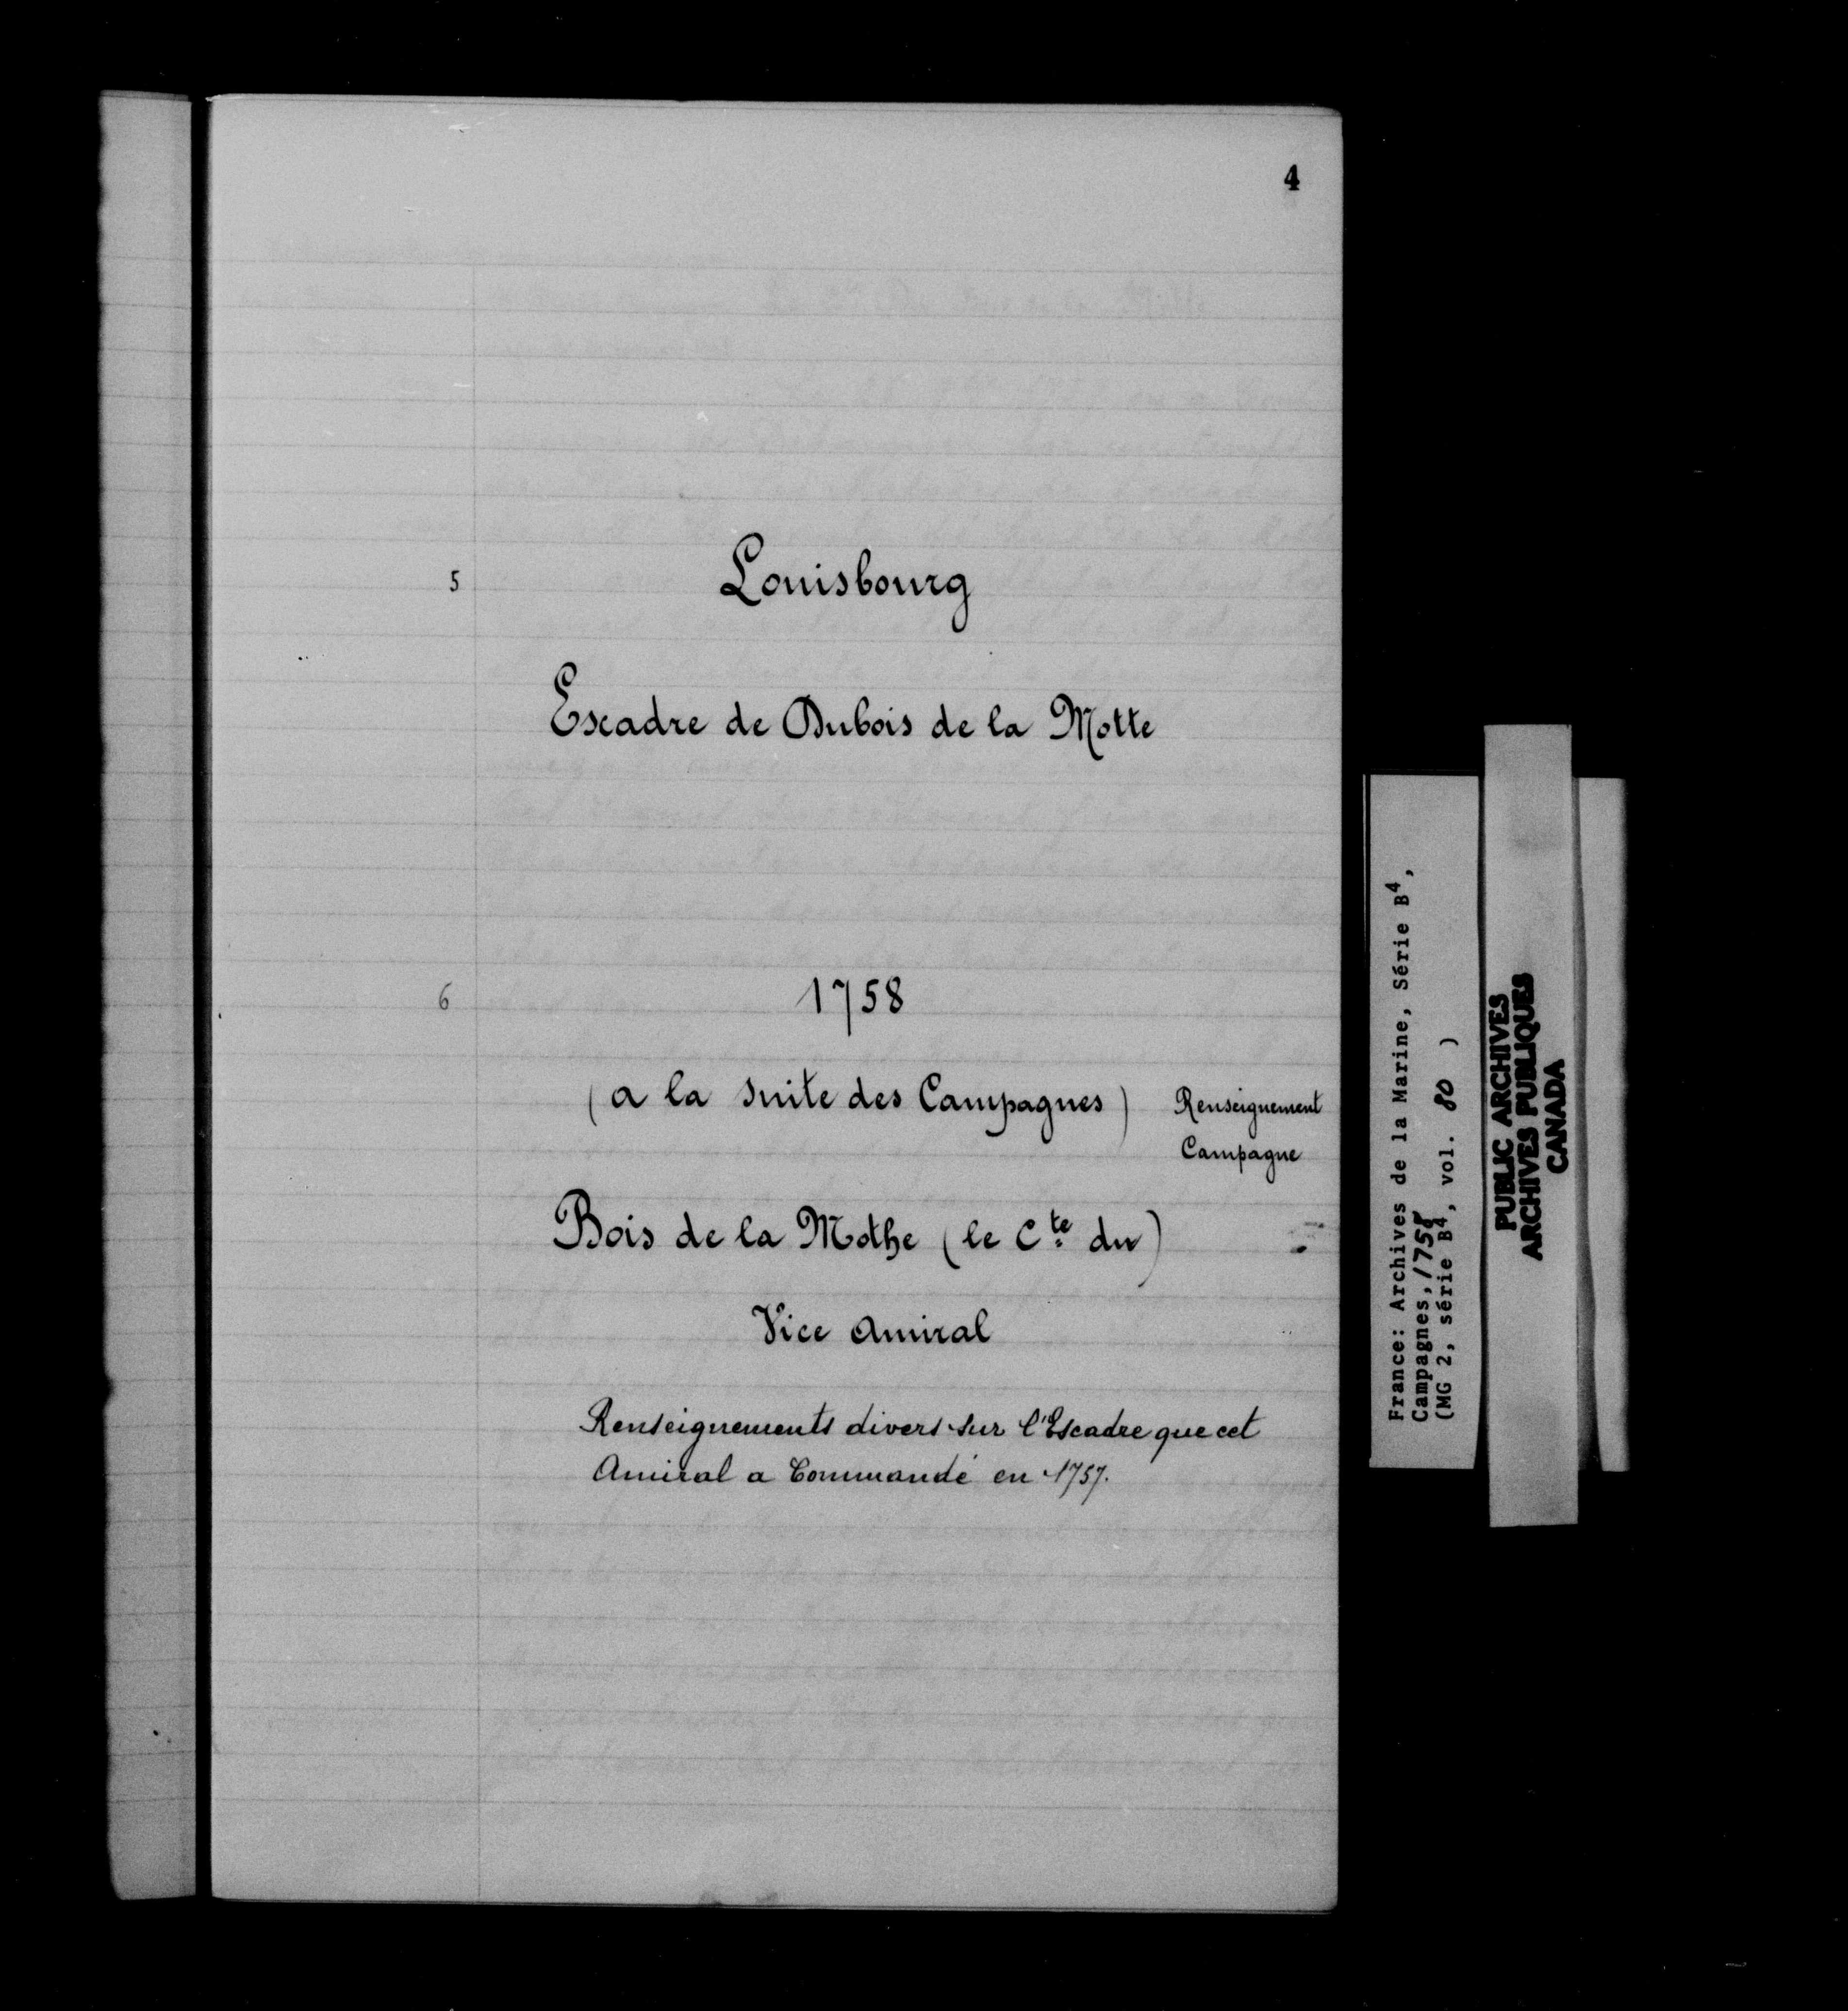 4
5 Louisbourg
Escadre de Dubois de la Motte
6 1758
(a la suite des Campagnes) Renseignement
Campagne
Bois de la Mothe (le Cte du)
Vice Amiral
Renseignements divers sur l'Escadre que cet
Amiral a Commandé en 1757.
France: Archives de la Marine, Série B4,
Campagnes,
(MG 2, série B4, vol. 80 )
PUBLIC ARCHIVES
ARCHIVES PUBLIQUES
CANADA